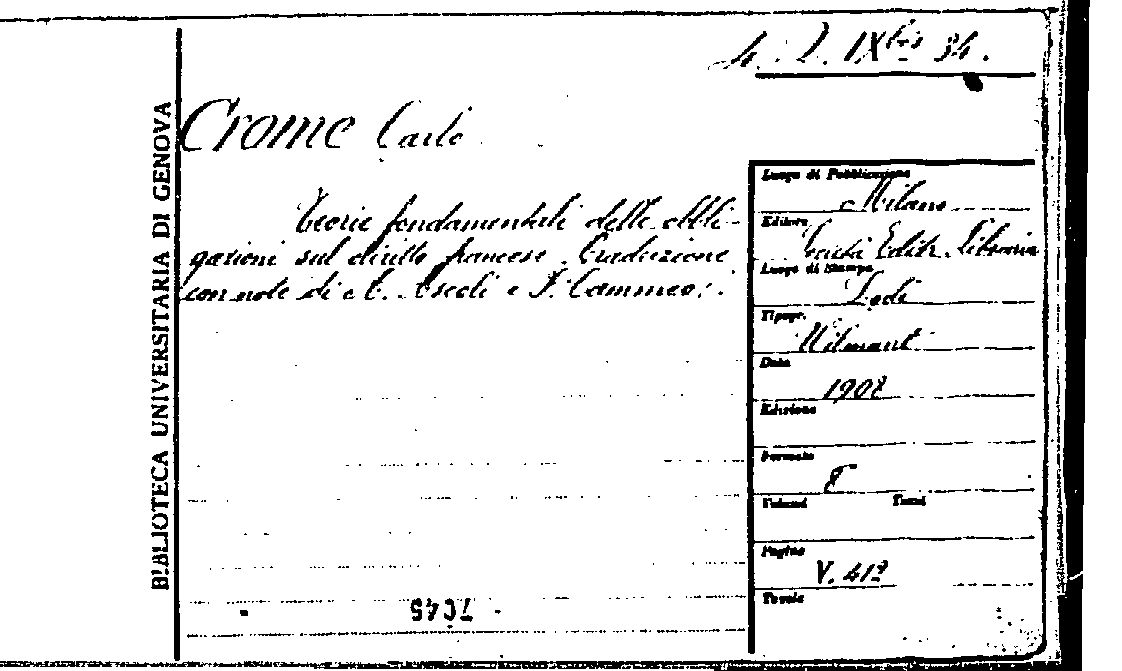 4. J. IXbis 34.
BIBLIOTECA UNIVERSITARIA DI GENOVA
Crome Carlo
Teorie fondamentali delle obbli-
gazioni sul diritto francese. Traduzione
con note di A. Ascoli e F. Cammeo.
Luogo di Pubblicazione
Milano
Editore
Società Editr. Libraria
Luogo di Stampa
Lodi
Tipogr.
Wilmant
Data
1908
Edizione
Formato
8
Volumi Tomi
Pagine
V. 419
Tavole
7045